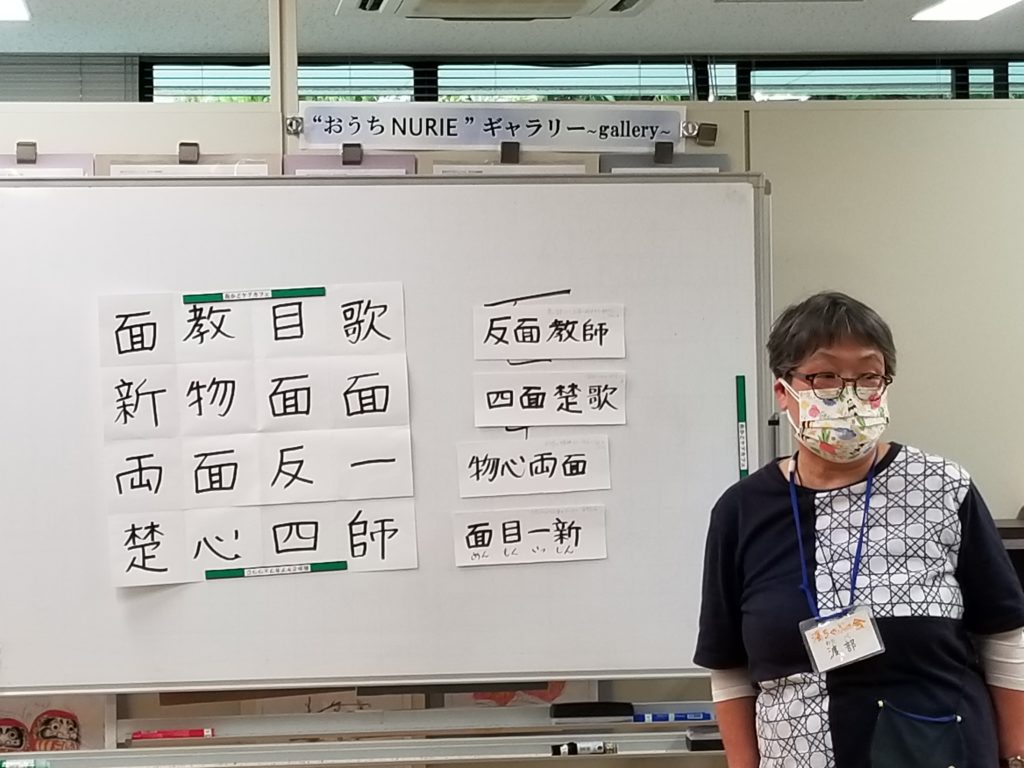 “おうちNURIE”ギャラリー~gallery~
面教目歌
新物面面
両面反一
楚心四師
反面教師
四面楚歌
物心両面
面目一新
めんもくいっしん
渡部